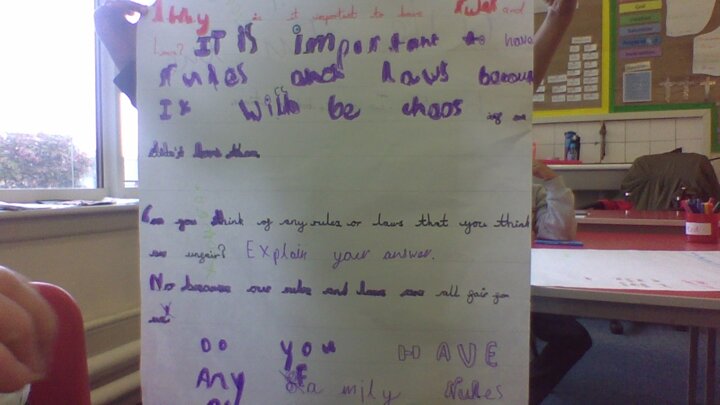 Why is it important to have rules and
laws? IT IS important to have
rules and laws because
It will be chaos if we
didn't have them
Can you think of any rules or laws that you think
are unfair? Explain your answer.
No because our rules and laws are all fair you
DO YOU HAVE
ANY Family Rules